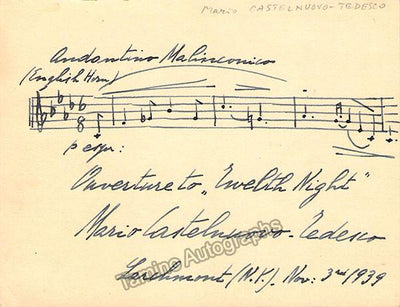 Mario CASTELNUOVO-TEDESCO
Andantino Malinconico
(English Horn)
6
8
p espr:
Ouverture to „Twelth Night"
Mario Castelnuovo-Tedesco
Tamino Autographs
Larchmont (N.Y.) Nov: 3rd 1939